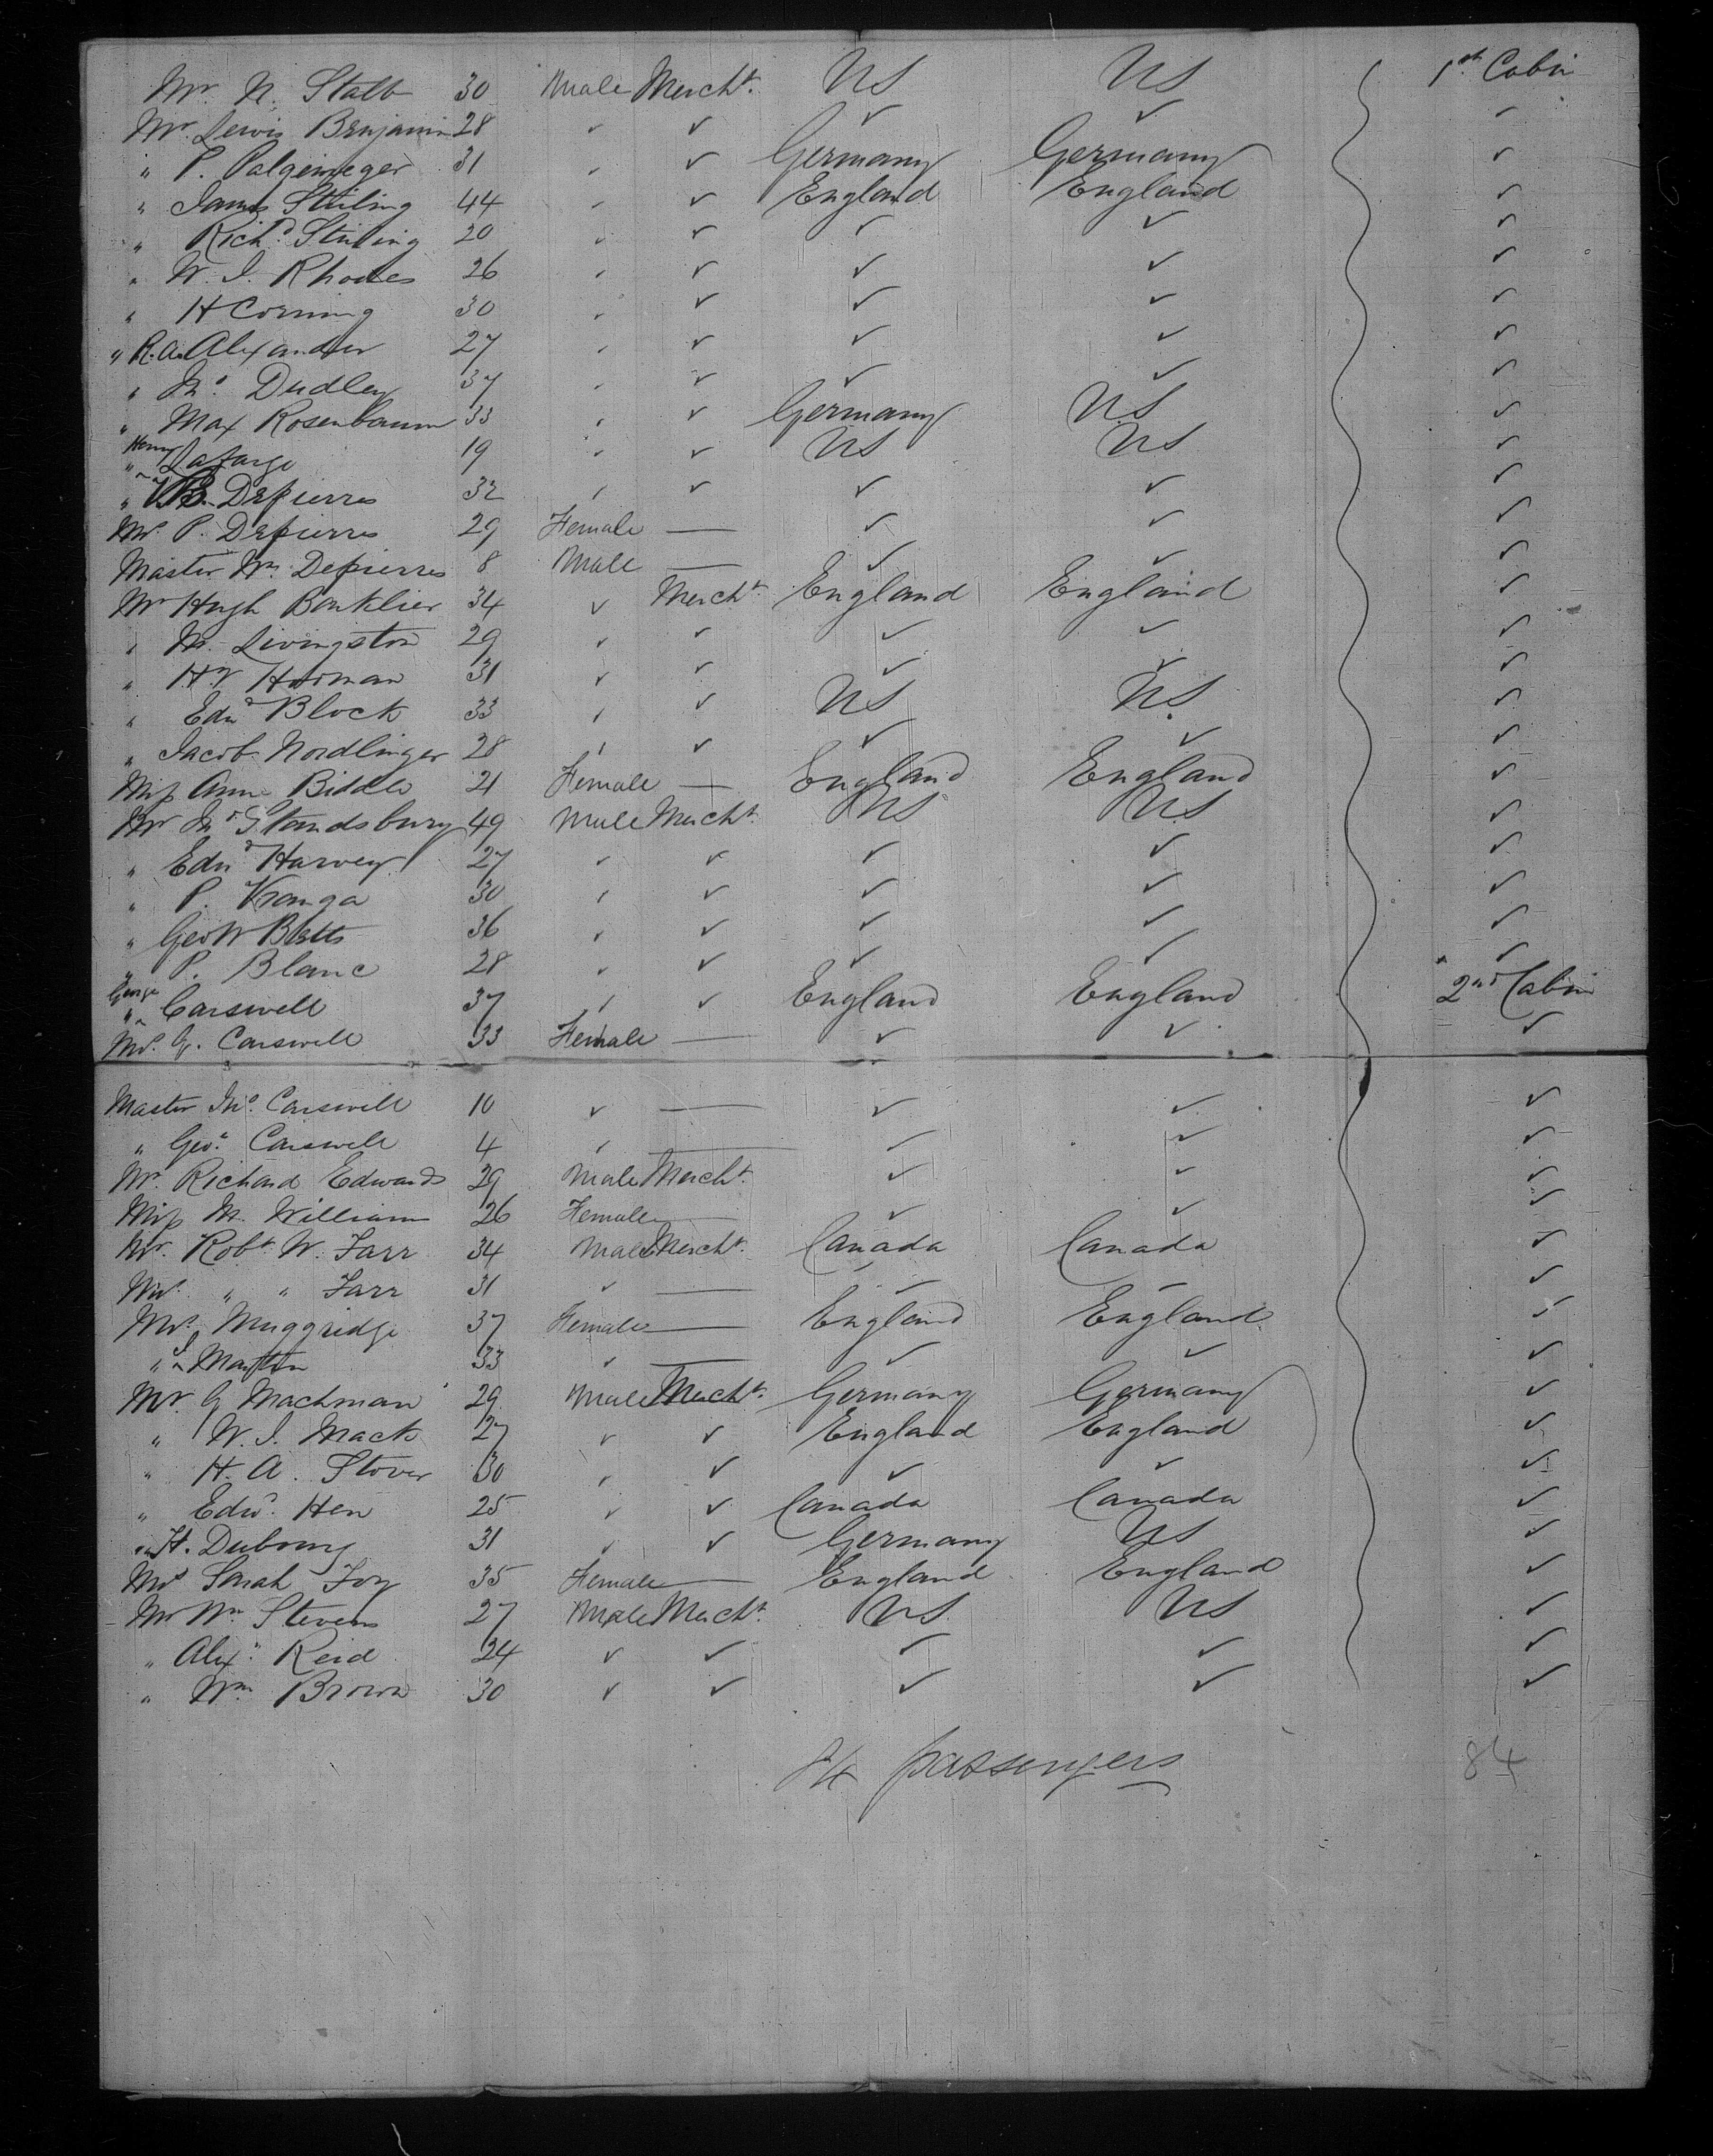 Mr. N. Stalb 30 Male Mercht. US US 1st Cabin
Mr. Lewis Benjamin 28 ✓ ✓ ✓ ✓ ✓
" P. 31 ✓ ✓ Germany Germany ✓
" James Stirling 44 ✓ ✓ England England ✓
" Richd. Stirling 20 ✓ ✓ ✓ ✓ ✓
" W. J. Rhodes 26 ✓ ✓ ✓ ✓ ✓
" H Corning 30 ✓ ✓ ✓ ✓ ✓
" R. A. Alexander 27 ✓ ✓ ✓ ✓ ✓
" Jno. Dudley 37 ✓ ✓ ✓ ✓ ✓
" Max Rosenbaum 33 ✓ ✓ Germany US ✓
" Henry Lafarge 19 ✓ ✓ US US ✓
" Depierres 32 ✓ ✓ ✓ ✓ ✓
Mrs. P. Depierres 29 Female — ✓ ✓ ✓
Master Wm. Depierres 8 Male — ✓ ✓ ✓
Mr Hugh 34 ✓ Mercht. England England ✓
" M. Livingston 29 ✓ ✓ ✓ ✓ ✓
" Hy. Horman 31 ✓ ✓ ✓ ✓ ✓
" Edwd Block 33 ✓ ✓ US US ✓
" Jacob Nordlinger 28 ✓ ✓ ✓ ✓ ✓
Miss Anne Biddle 21 Female — England England ✓
Mr Jno Standsbury 49 Male Mercht. US US ✓
" Edwd Harvey 27 ✓ ✓ ✓ ✓ ✓
" P. 30 ✓ ✓ ✓ ✓ ✓
" Geo W Betts 36 ✓ ✓ ✓ ✓ ✓
" P. Blanc 28 ✓ ✓ ✓ ✓ ✓
" George Carswell 37 ✓ ✓ England England 2nd Cabin
Mrs. G. Carswell 33 Female — ✓ ✓ ✓
Master Jno. Carswell 10 ✓ — ✓ ✓ ✓
" Geo. Carswell 4 ✓ — ✓ ✓ ✓
Mr. Richard Edwards 29 Male Mercht. ✓ ✓ ✓
Miss M. William 26 Female — ✓ ✓ ✓
Mr. Robt. W. Farr 34 Male Mercht. Canada Canada ✓
Mrs. " " Farr 31 ✓ — ✓ ✓ ✓
Mrs. Muggridge 37 Female — England England ✓
" S. Martin 33 ✓ — ✓ ✓ ✓
Mr. G Machman 29 Male Mercht. Germany Germany ✓
" W. J. Mack 27 ✓ ✓ England England ✓
" H. A. Stover 30 ✓ ✓ ✓ ✓ ✓
" Edwd. Hen 25 ✓ ✓ Canada Canada ✓
" H. Dubourg 31 ✓ ✓ Germany US ✓
Mrs Sarah Foy 35 Female — England England ✓
Mr Wm Stevens 27 Male Mercht. US US ✓
" Alexr. Reid 24 ✓ ✓ ✓ ✓ ✓
" Wm. Brown 30 ✓ ✓ ✓ ✓ ✓
84 passengers 84